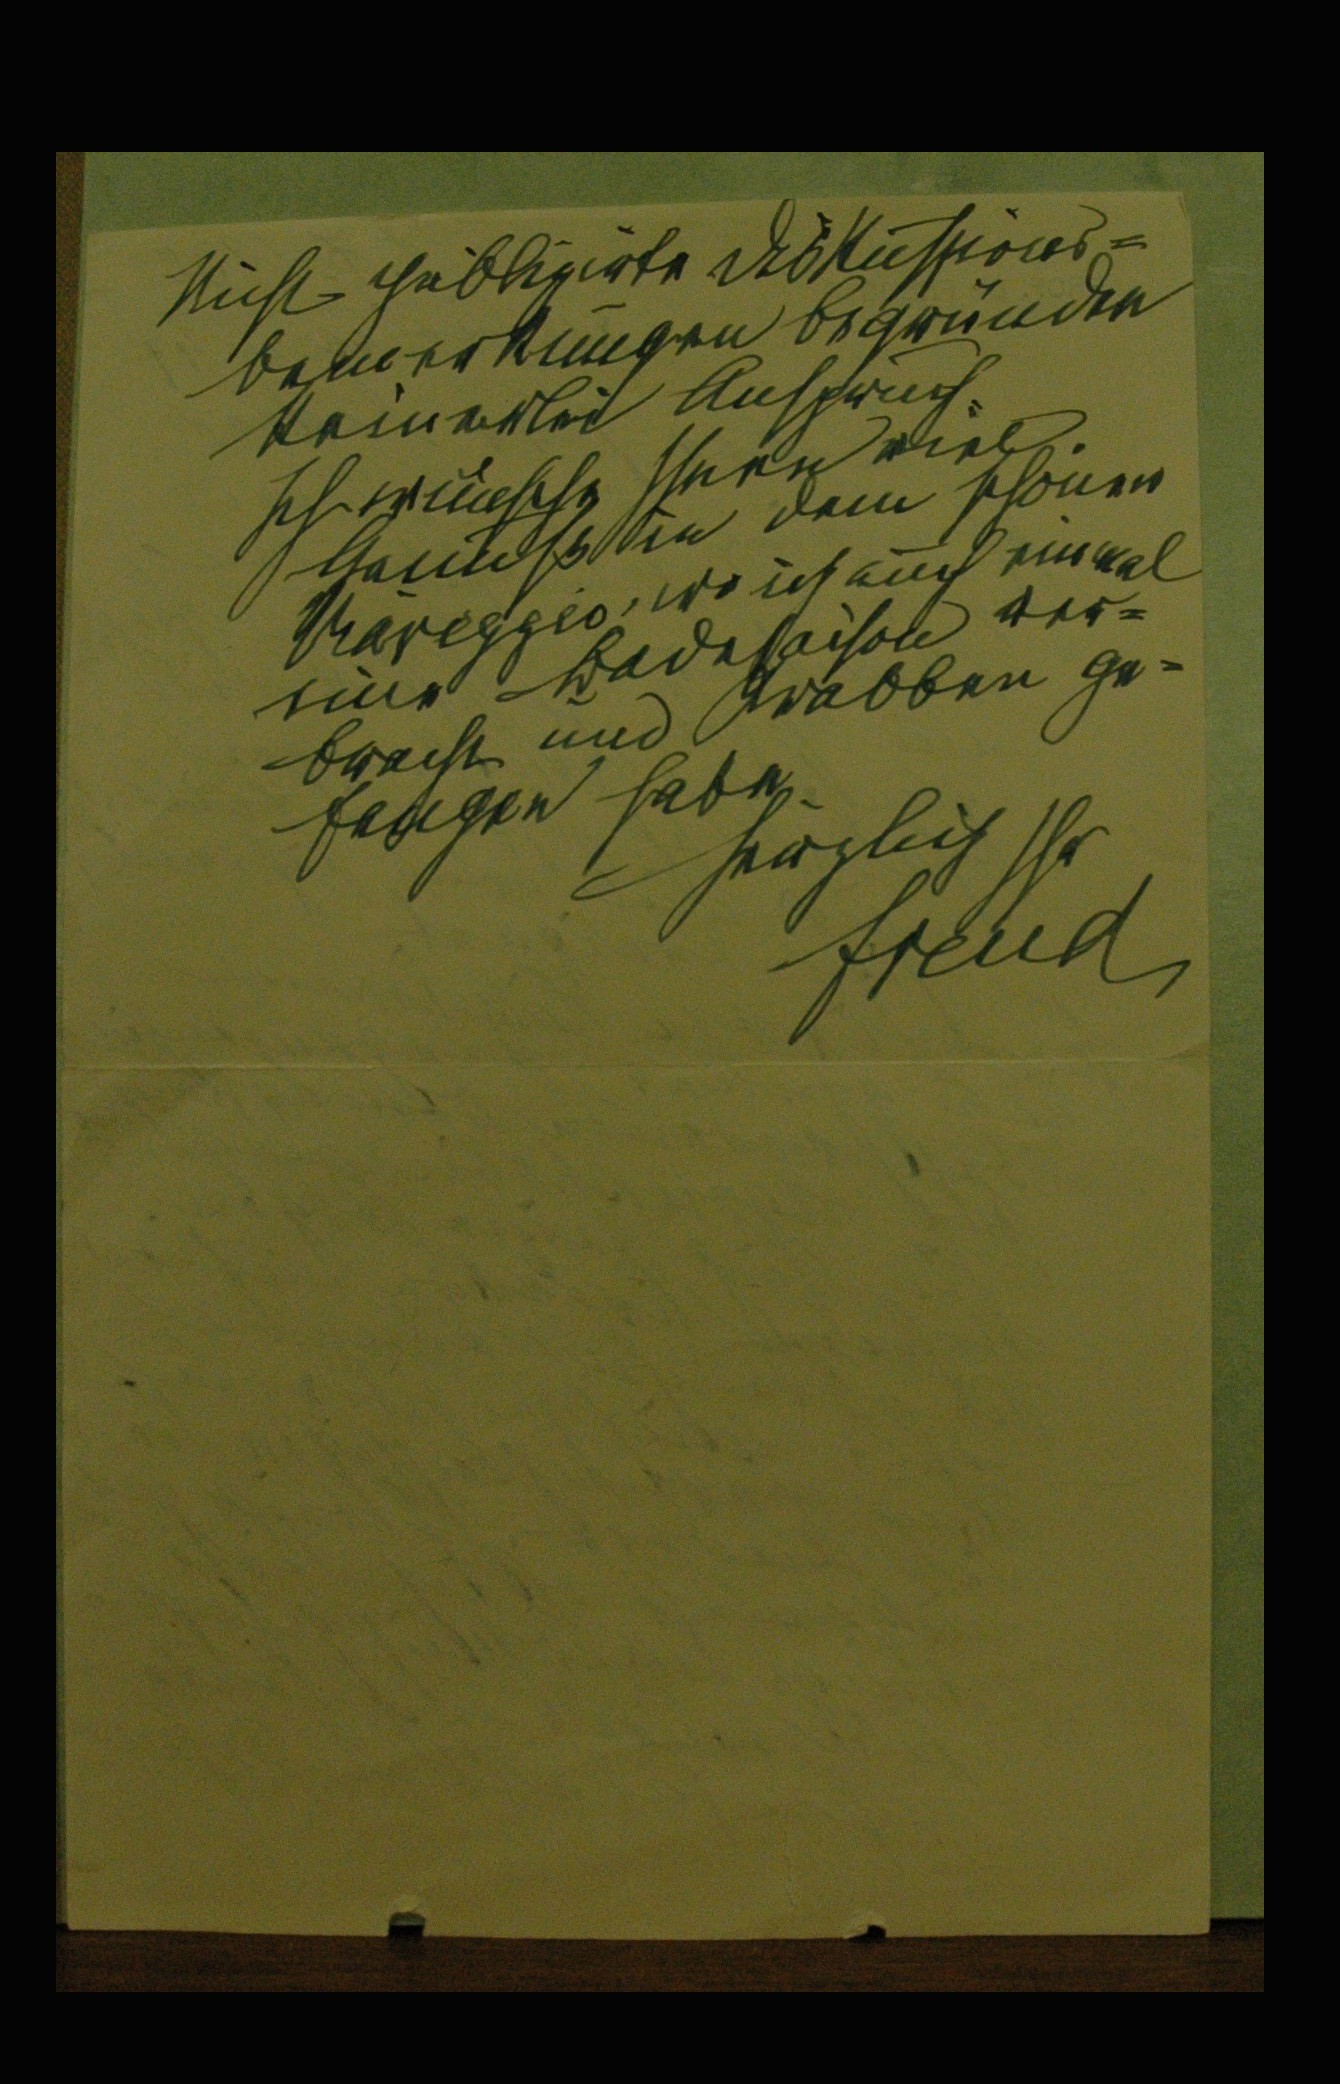 Nicht publizirte Diskussions=
bemerkungen begründen
keinerlei Anspruch.
Ich wünsche Ihnen viel
Genuß in dem schönen
Viareggio, wo ich auch einmal
eine Badesaison ver=
bracht und Krabben ge=
fangen habe.
Herzlich Ihr
Freud